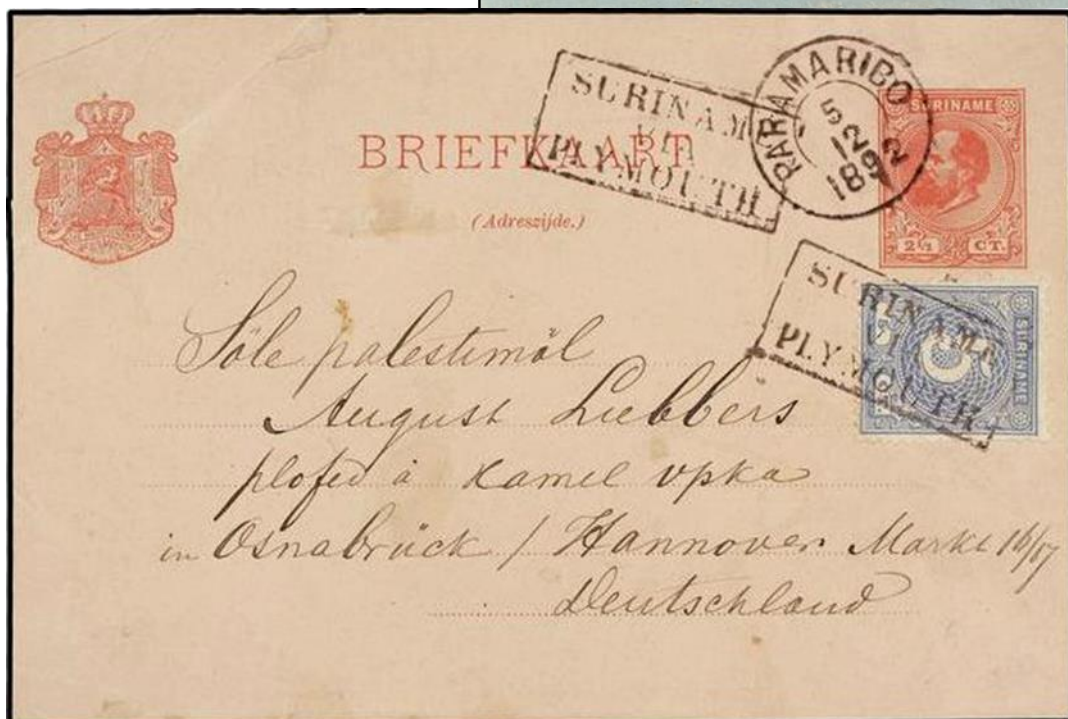 BRIEFKAART
(Adreszijde.)
SURINAM
VIA
PLYMOUTH
PARAMARIBO
5
12
1892
SURINAME
2½ CT.
SURINAME
VIA
PLYMOUTH
SURINAME
5
Söle palestimöl
August Lübbers
plofed à kamel vpka
in Osnabrück / Hannover. Markt 16/17
Deutschland